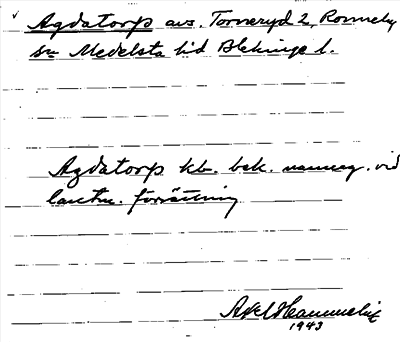 Agdatorp avs. Torneryd 2, Ronneby
sn Medelsta hd Blekinge l.
Agdatorp kb. bek. namng. vid
lantm. förrättning
Axel
1943